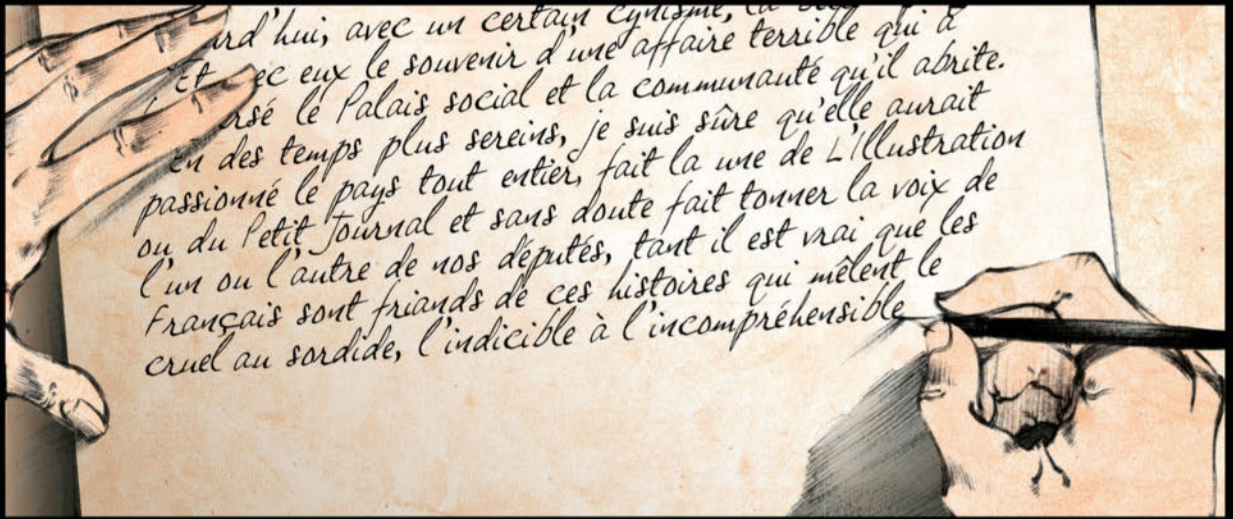 ard'hui, avec un certain cynisme, la
et avec eux le souvenir d'une affaire terrible qui a
rsé le Palais social et la communauté qu'il abrite.
En des temps plus sereins, je suis sûre qu'elle aurait
passionné le pays tout entier, fait la une de L'Illustration
ou du Petit Journal et sans doute fait tonner la voix de
l'un ou l'autre de nos députés, tant il est vrai que les
Français sont friands de ces histoires qui mêlent le
cruel au sordide, l'indicible à l'incompréhensible